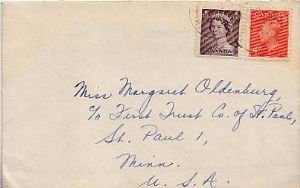 CANADA
Miss Margaret Oldenburg,
c/o First Trust Co. of St. Paul,
St. Paul 1,
Minn.
U. S. A.